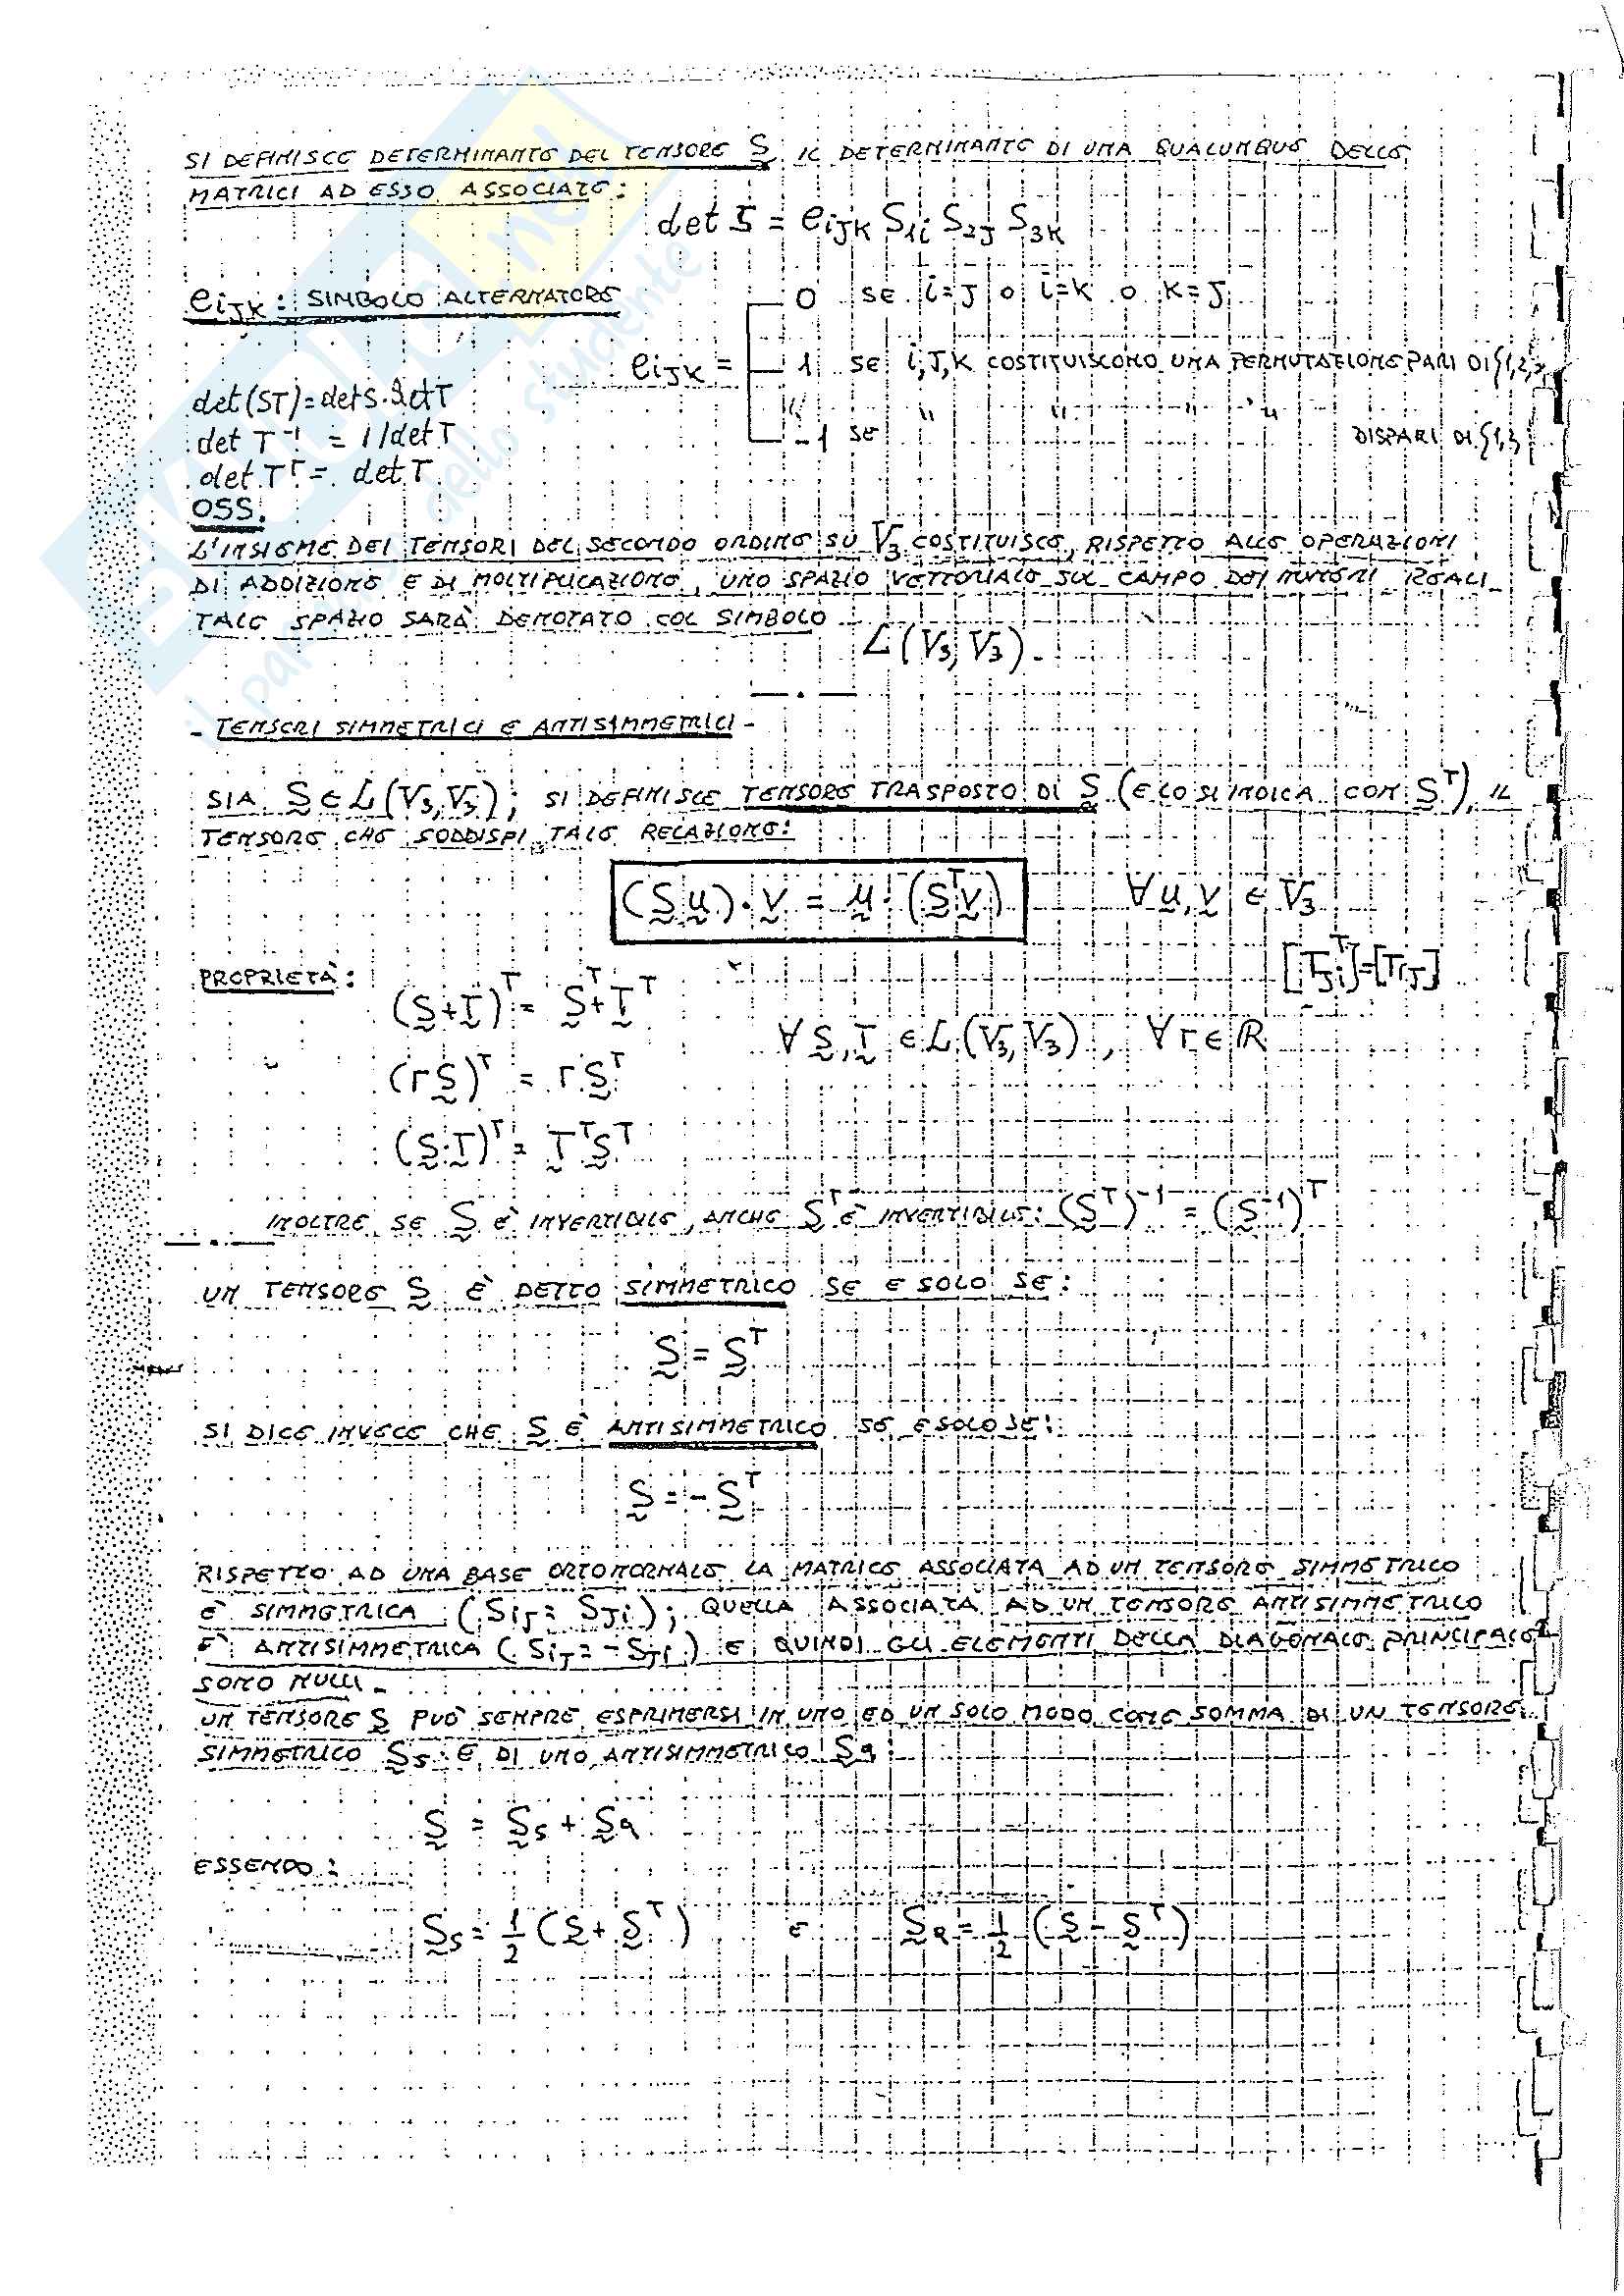 SI DEFINISCE DETERMINANTE DEL TENSORE S IL DETERMINANTE DI UNA QUALUNQUE DELLE
MATRICI AD ESSO ASSOCIATE:
det S = eijk S1i S2j S3k
eijk : SIMBOLO ALTERNATORE
0 se i=j o i=k o k=j
eijk = 1 se i,j,k COSTITUISCONO UNA PERMUTAZIONE PARI DI {1,2,
det(ST)=detS·detT
-1 se " " " " " DISPARI DI {1,
det T⁻¹ = 1/det T
det Tᵀ = det T
OSS.
L'INSIEME DEI TENSORI DEL SECONDO ORDINE SU V3 COSTITUISCE, RISPETTO ALLE OPERAZIONI
DI ADDIZIONE E DI MOLTIPLICAZIONE, UNO SPAZIO VETTORIALE SUL CAMPO DEI NUMERI REALI
TALE SPAZIO SARÀ DENOTATO COL SIMBOLO
L(V3, V3).
- TENSORI SIMMETRICI E ANTISIMMETRICI -
SIA S ∈ L(V3,V3); SI DEFINISCE TENSORE TRASPOSTO DI S (E LO SI INDICA CON Sᵀ), IL
TENSORE CHE SODDISFI TALE RELAZIONE:
(S u)·v = u·(Sᵀv) ∀ u,v ∈ V3
[Tjiᵀ]=[Tij]
PROPRIETÀ:
(S+T)ᵀ = Sᵀ+Tᵀ
∀ S,T ∈ L(V3,V3), ∀ r ∈ ℝ
(rS)ᵀ = rSᵀ
(S·T)ᵀ = TᵀSᵀ
INOLTRE SE S È INVERTIBILE, ANCHE Sᵀ È INVERTIBILE: (Sᵀ)⁻¹ = (S⁻¹)ᵀ
UN TENSORE S È DETTO SIMMETRICO SE E SOLO SE:
S = Sᵀ
SI DICE INVECE CHE S È ANTISIMMETRICO SE E SOLO SE:
S = -Sᵀ
RISPETTO AD UNA BASE ORTONORMALE LA MATRICE ASSOCIATA AD UN TENSORE SIMMETRICO
È SIMMETRICA (Sij = Sji); QUELLA ASSOCIATA AD UN TENSORE ANTISIMMETRICO
È ANTISIMMETRICA (Sij = -Sji) E QUINDI GLI ELEMENTI DELLA DIAGONALE PRINCIPALE
SONO NULLI.
UN TENSORE S PUÒ SEMPRE ESPRIMERSI IN UNO ED UN SOLO MODO COME SOMMA DI UN TENSORE
SIMMETRICO Ss E DI UNO ANTISIMMETRICO Sa:
S = Ss + Sa
ESSENDO:
Ss = 1/2 (S + Sᵀ) E Sa = 1/2 (S - Sᵀ)